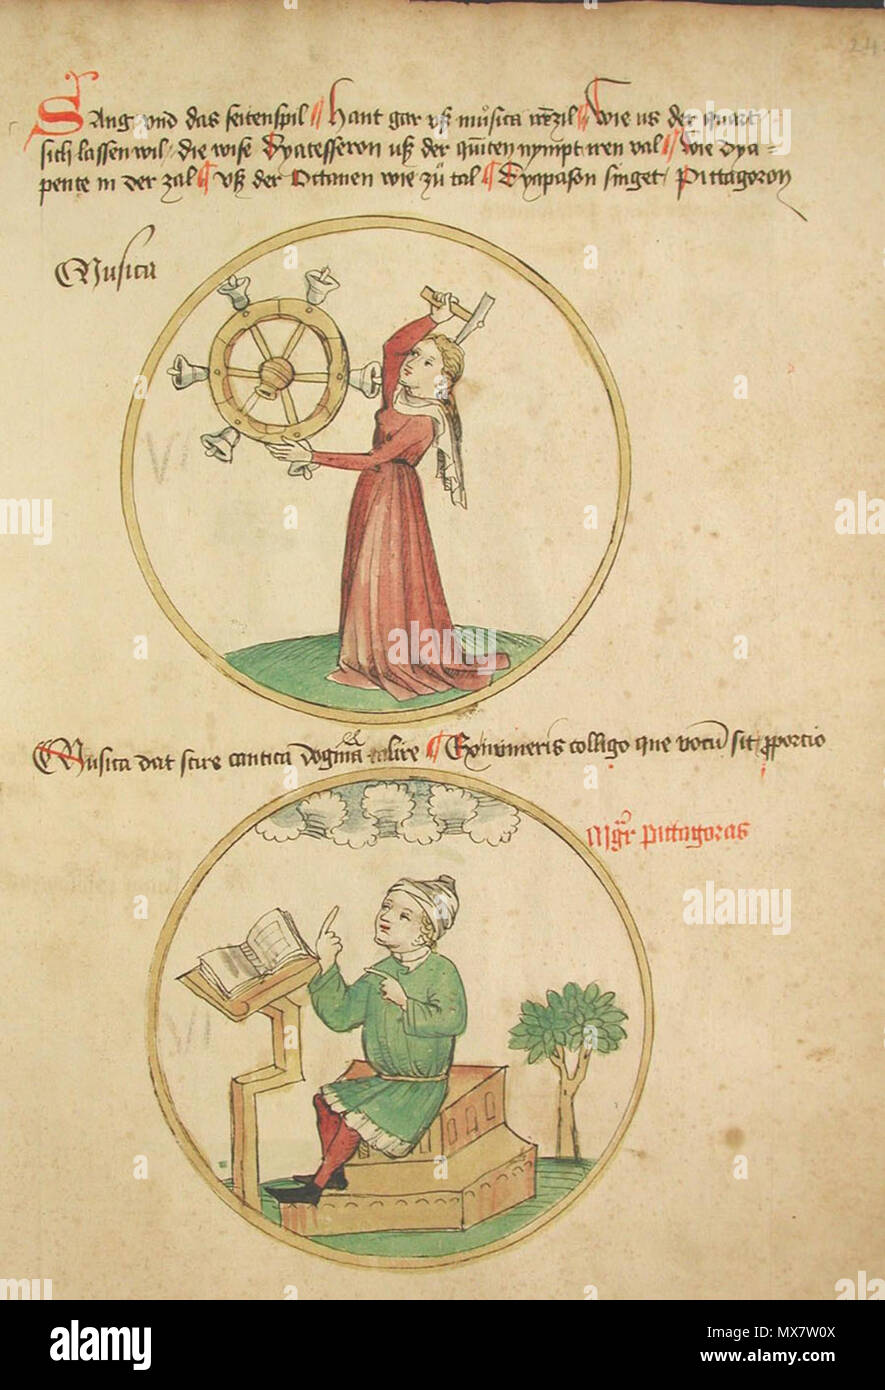 24
Sang vnd das seitenspil hant gar vß musica ir zil Wie us der quart
sich lassen wil die wise Dyatesseron uß der quinten nympt iren val wie dya=
pente in der zal vß der Octauen wie zů tal Dyapason singet Pittagoron
Musica
VI
Musica dat scire cantica dogma E numeris colligo que vocum sit proporcio
Mgr pittagoras
VI
alamy
Image ID: MX7W0X
www.alamy.com